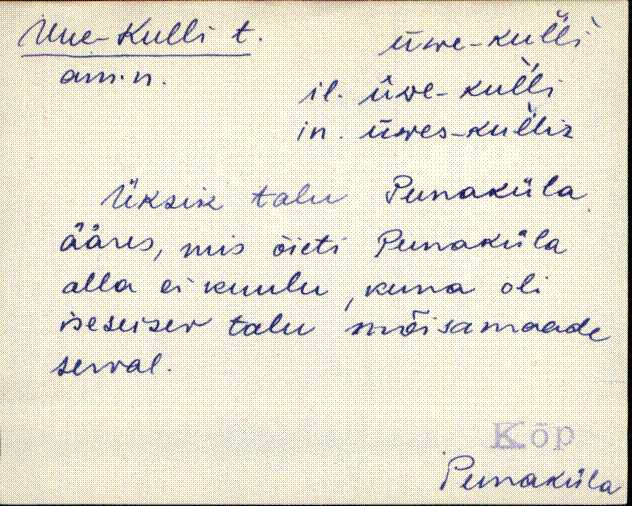 Uue-Kulli t. üwe-kulli
am.n.
il. üwe-kulli
in. üwes-kullis
Üksik talu Punaküla
ääres, mis õieti Punaküla
alla ei kuulu, kuna oli
iseseisev talu mõisamaade
serval.
Kõp
Punaküla